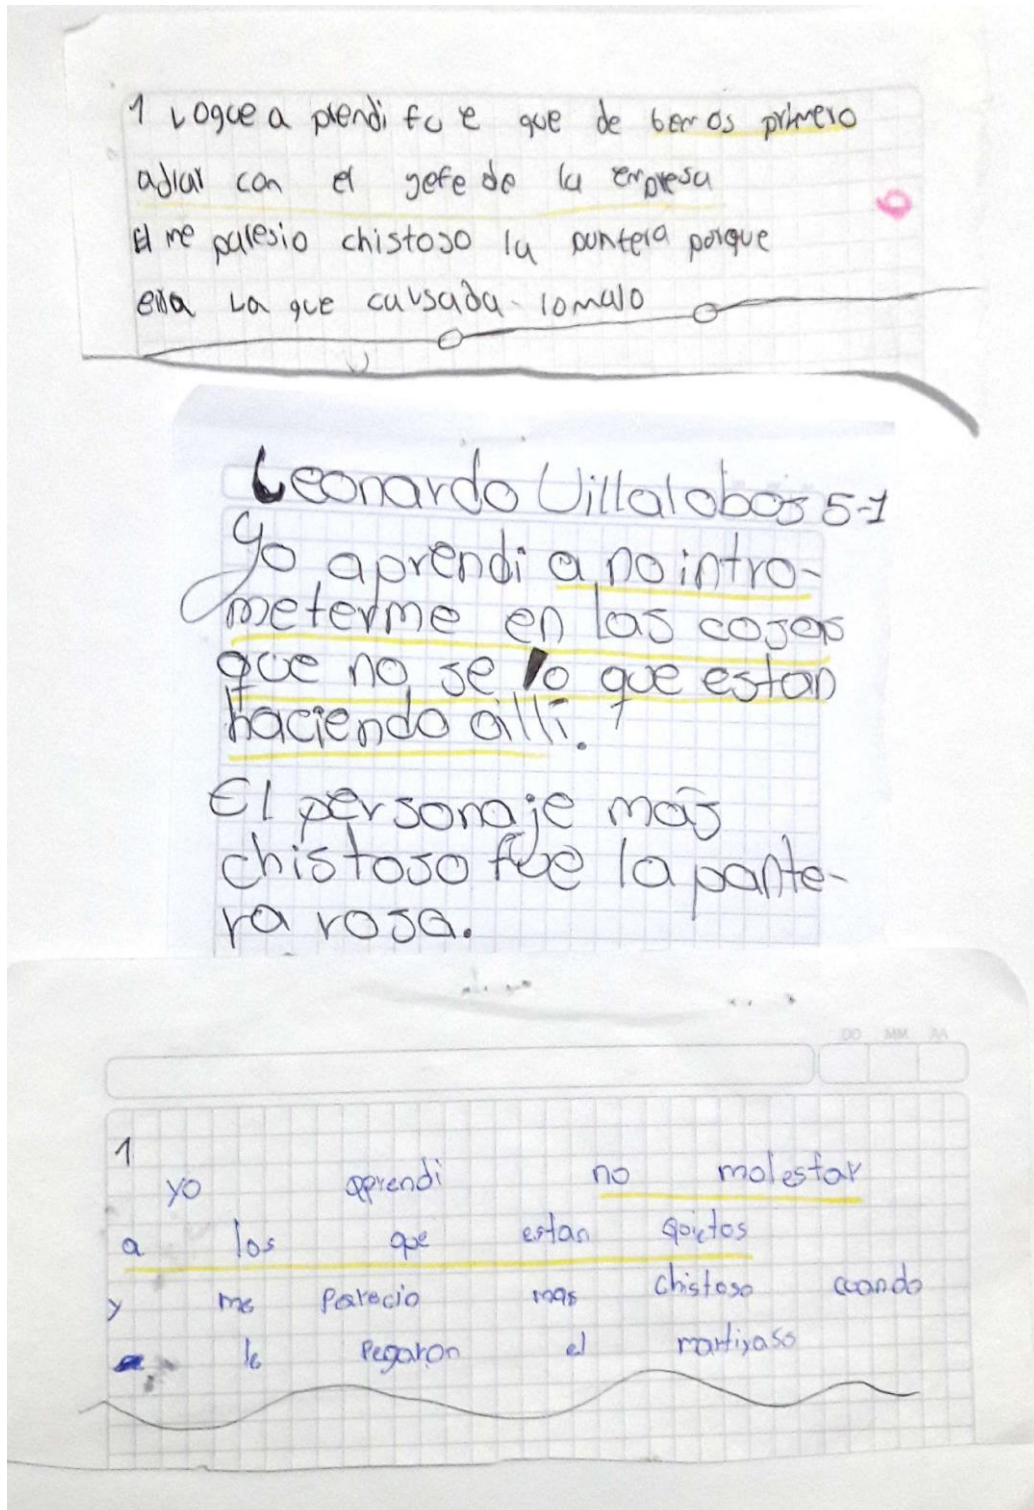 1 Loque a prendi fue que de bemos primero
ablar con el gefe de la empresa
El me paresio chistoso la pantera porque
era La que causada lo malo
6
Leonardo Villalobos 5-1
Yo aprendi a no intro-
meterme en las cosas
que no se lo que estan
haciendo alli.
El personaje más
chistoso fue la pante-
ra rosa.
DD MM AA
1
yo aprendi no molestar
a los que estan quietos
y me parecio mas chistoso cuando
le pegaron el martiyaso